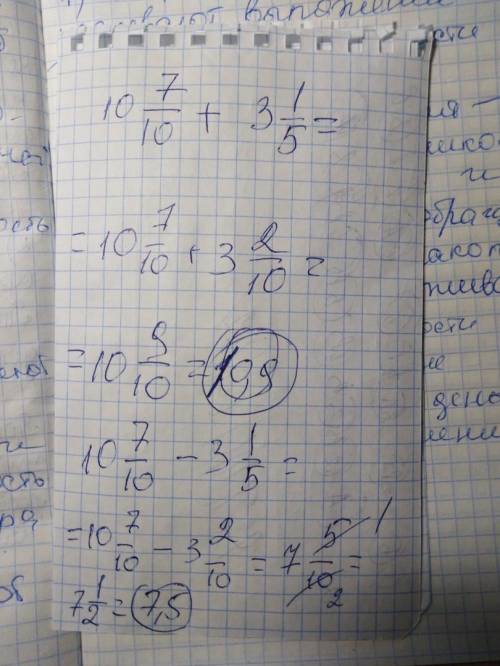 выполнении
10 7/10 + 3 1/5 =
= 10 7/10 + 3 2/10 =
= 10 9/10 = 10,9
10 7/10 - 3 1/5 =
= 10 7/10 - 3 2/10 = 7 5/10 = 1 2
7 1/2 = 7,5